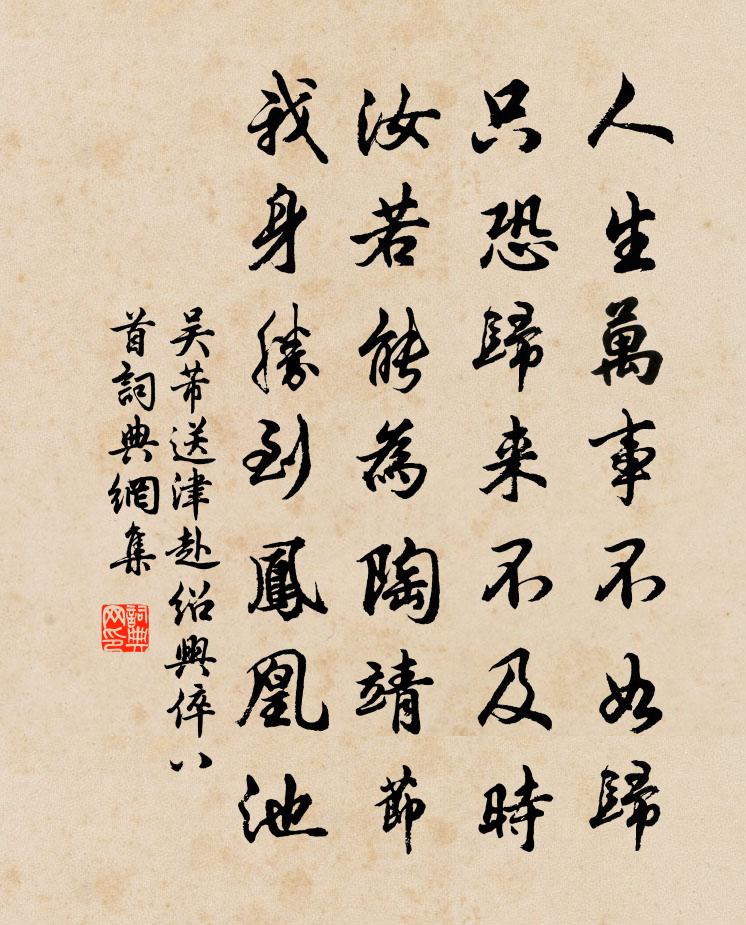 人生萬事不如歸
只恐歸来不及時
汝若能為陶靖節
我身勝到鳳凰池
吴芾送津赴紹興倅八
首詞典網集
詞典網印